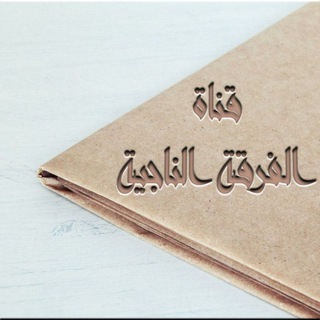 قناة
الفرقة الناجية